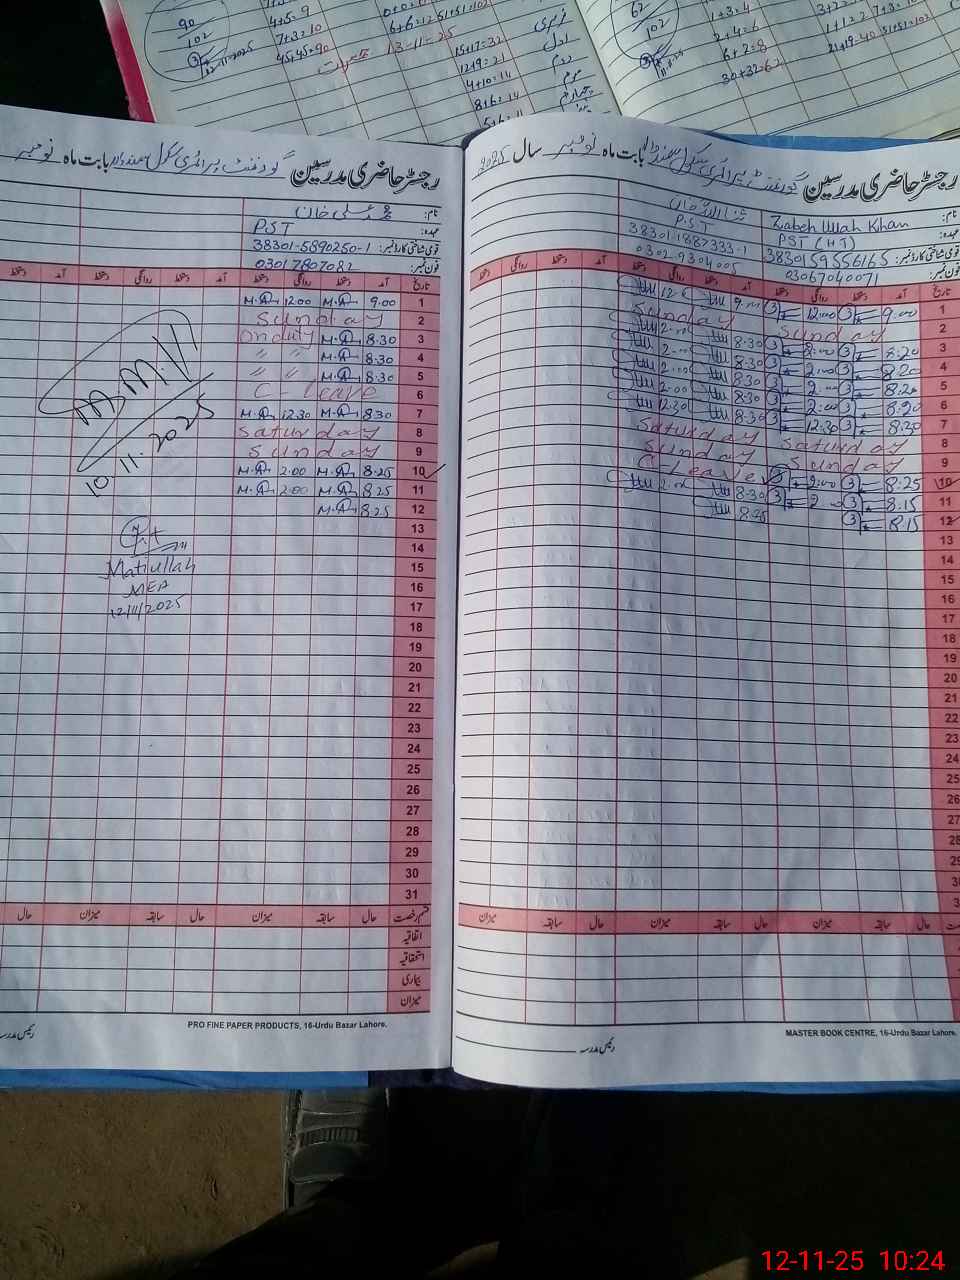 90
102
12-11-2025
4+5=9
7+3=10
45+45=90
0+0=0
6+6=12 51+51=102
13-11-25
15+17=32
12+9=21
4+10=14
8+6=14
اول
دوم
سوم
چہارم
62
102
1+3=4
2+4=6
6+2=8
30+32=62
3+2=
1+1=2 7+3=10
21+19=40 51+51=102
رجسٹر حاضری مدرسین گورنمنٹ پرائمری سکول بابت ماہ نومبر
نام: محمد علی خان
عہدہ: PST
قومی شناختی کارڈ نمبر: 38301-5890250-1
فون نمبر: 03017807082
تاریخ آمد دستخط روانگی دستخط آمد دستخط روانگی دستخط
1 9.00 M.A 12.00 M.A
2 Sunday
3 8.30 M.A on duty
4 8.30 M.A " "
5 8.30 M.A " "
6 C-leave
7 8.30 M.A 12.30 M.A
8 Saturday
9 Sunday
10 8.25 M.A 2.00 M.A
11 8.25 M.A 2.00 M.A
12 8.25 M.A
13
14
15
16
17
18
19
20
21
22
23
24
25
26
27
28
29
30
31
10.11.2025
Matiullah
MEA
12/11/2025
قسم رخصت حال سابقہ میزان حال سابقہ میزان حال
اتفاقیہ
استحقاقیہ
بیماری
میزان
PRO FINE PAPER PRODUCTS, 16-Urdu Bazar Lahore.
رئیس مدرسہ
رجسٹر حاضری مدرسین گورنمنٹ پرائمری سکول بابت ماہ نومبر سال 2025
نام: Zabeh Ullah Khan
عہدہ: PST (HT) PST
قومی شناختی کارڈ نمبر: 3830159556165 38301-1887333-1
فون نمبر: 03067040071 0302-9304005
تاریخ آمد دستخط روانگی دستخط آمد دستخط روانگی دستخط
1 9.00 12.00 9.00
2 Sunday Sunday
3 8.20 2.00 8.30 2.00
4 8.20 2.00 8.30 2.00
5 8.20 2.00 8.30 2.00
6 8.20 2.00 8.30 2.00
7 8.20 12.30 8.30 12.30
8 Saturday Saturday
9 Sunday Sunday
10 8.25 2.00 C-Leave
11 8.15 2.00 8.30 2.00
12 8.15 8.25
13
14
15
16
17
18
19
20
21
22
23
24
25
26
27
28
29
حال سابقہ میزان حال سابقہ میزان
MASTER BOOK CENTRE, 16-Urdu Bazar Lahore.
رئیس مدرسہ
12-11-25 10:24